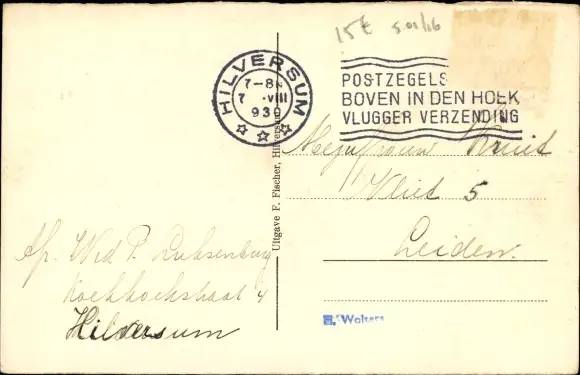 15€ 5.01/16
HILVERSUM
7-8N
7 .VIII
930
POSTZEGELS
BOVEN IN DEN HOEK
VLUGGER VERZENDING
Mejufvrouw Kruit
Vliet 5
Leiden.
Uitgave F. Fischer, Hilversum
Af. Wed P.
4
Hilversum
Wolters